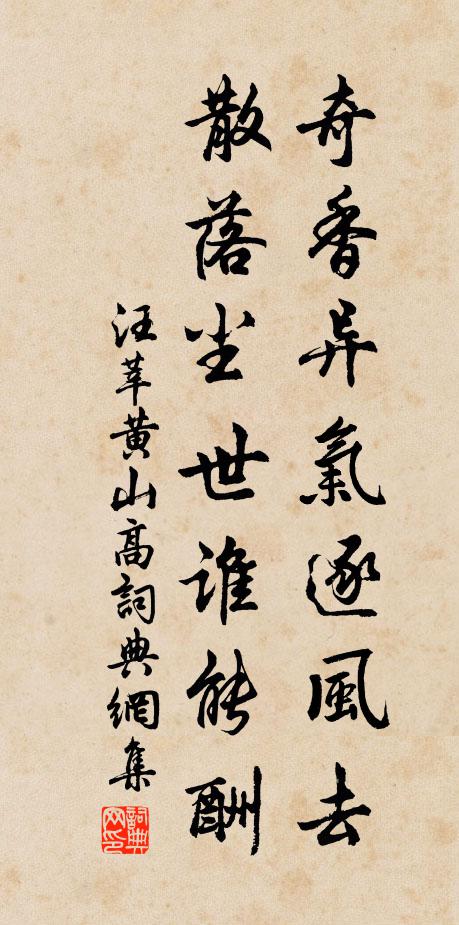 奇香异氣逐風去
散落尘世谁能酬
汪莘黄山高詞典網集
詞典
网印